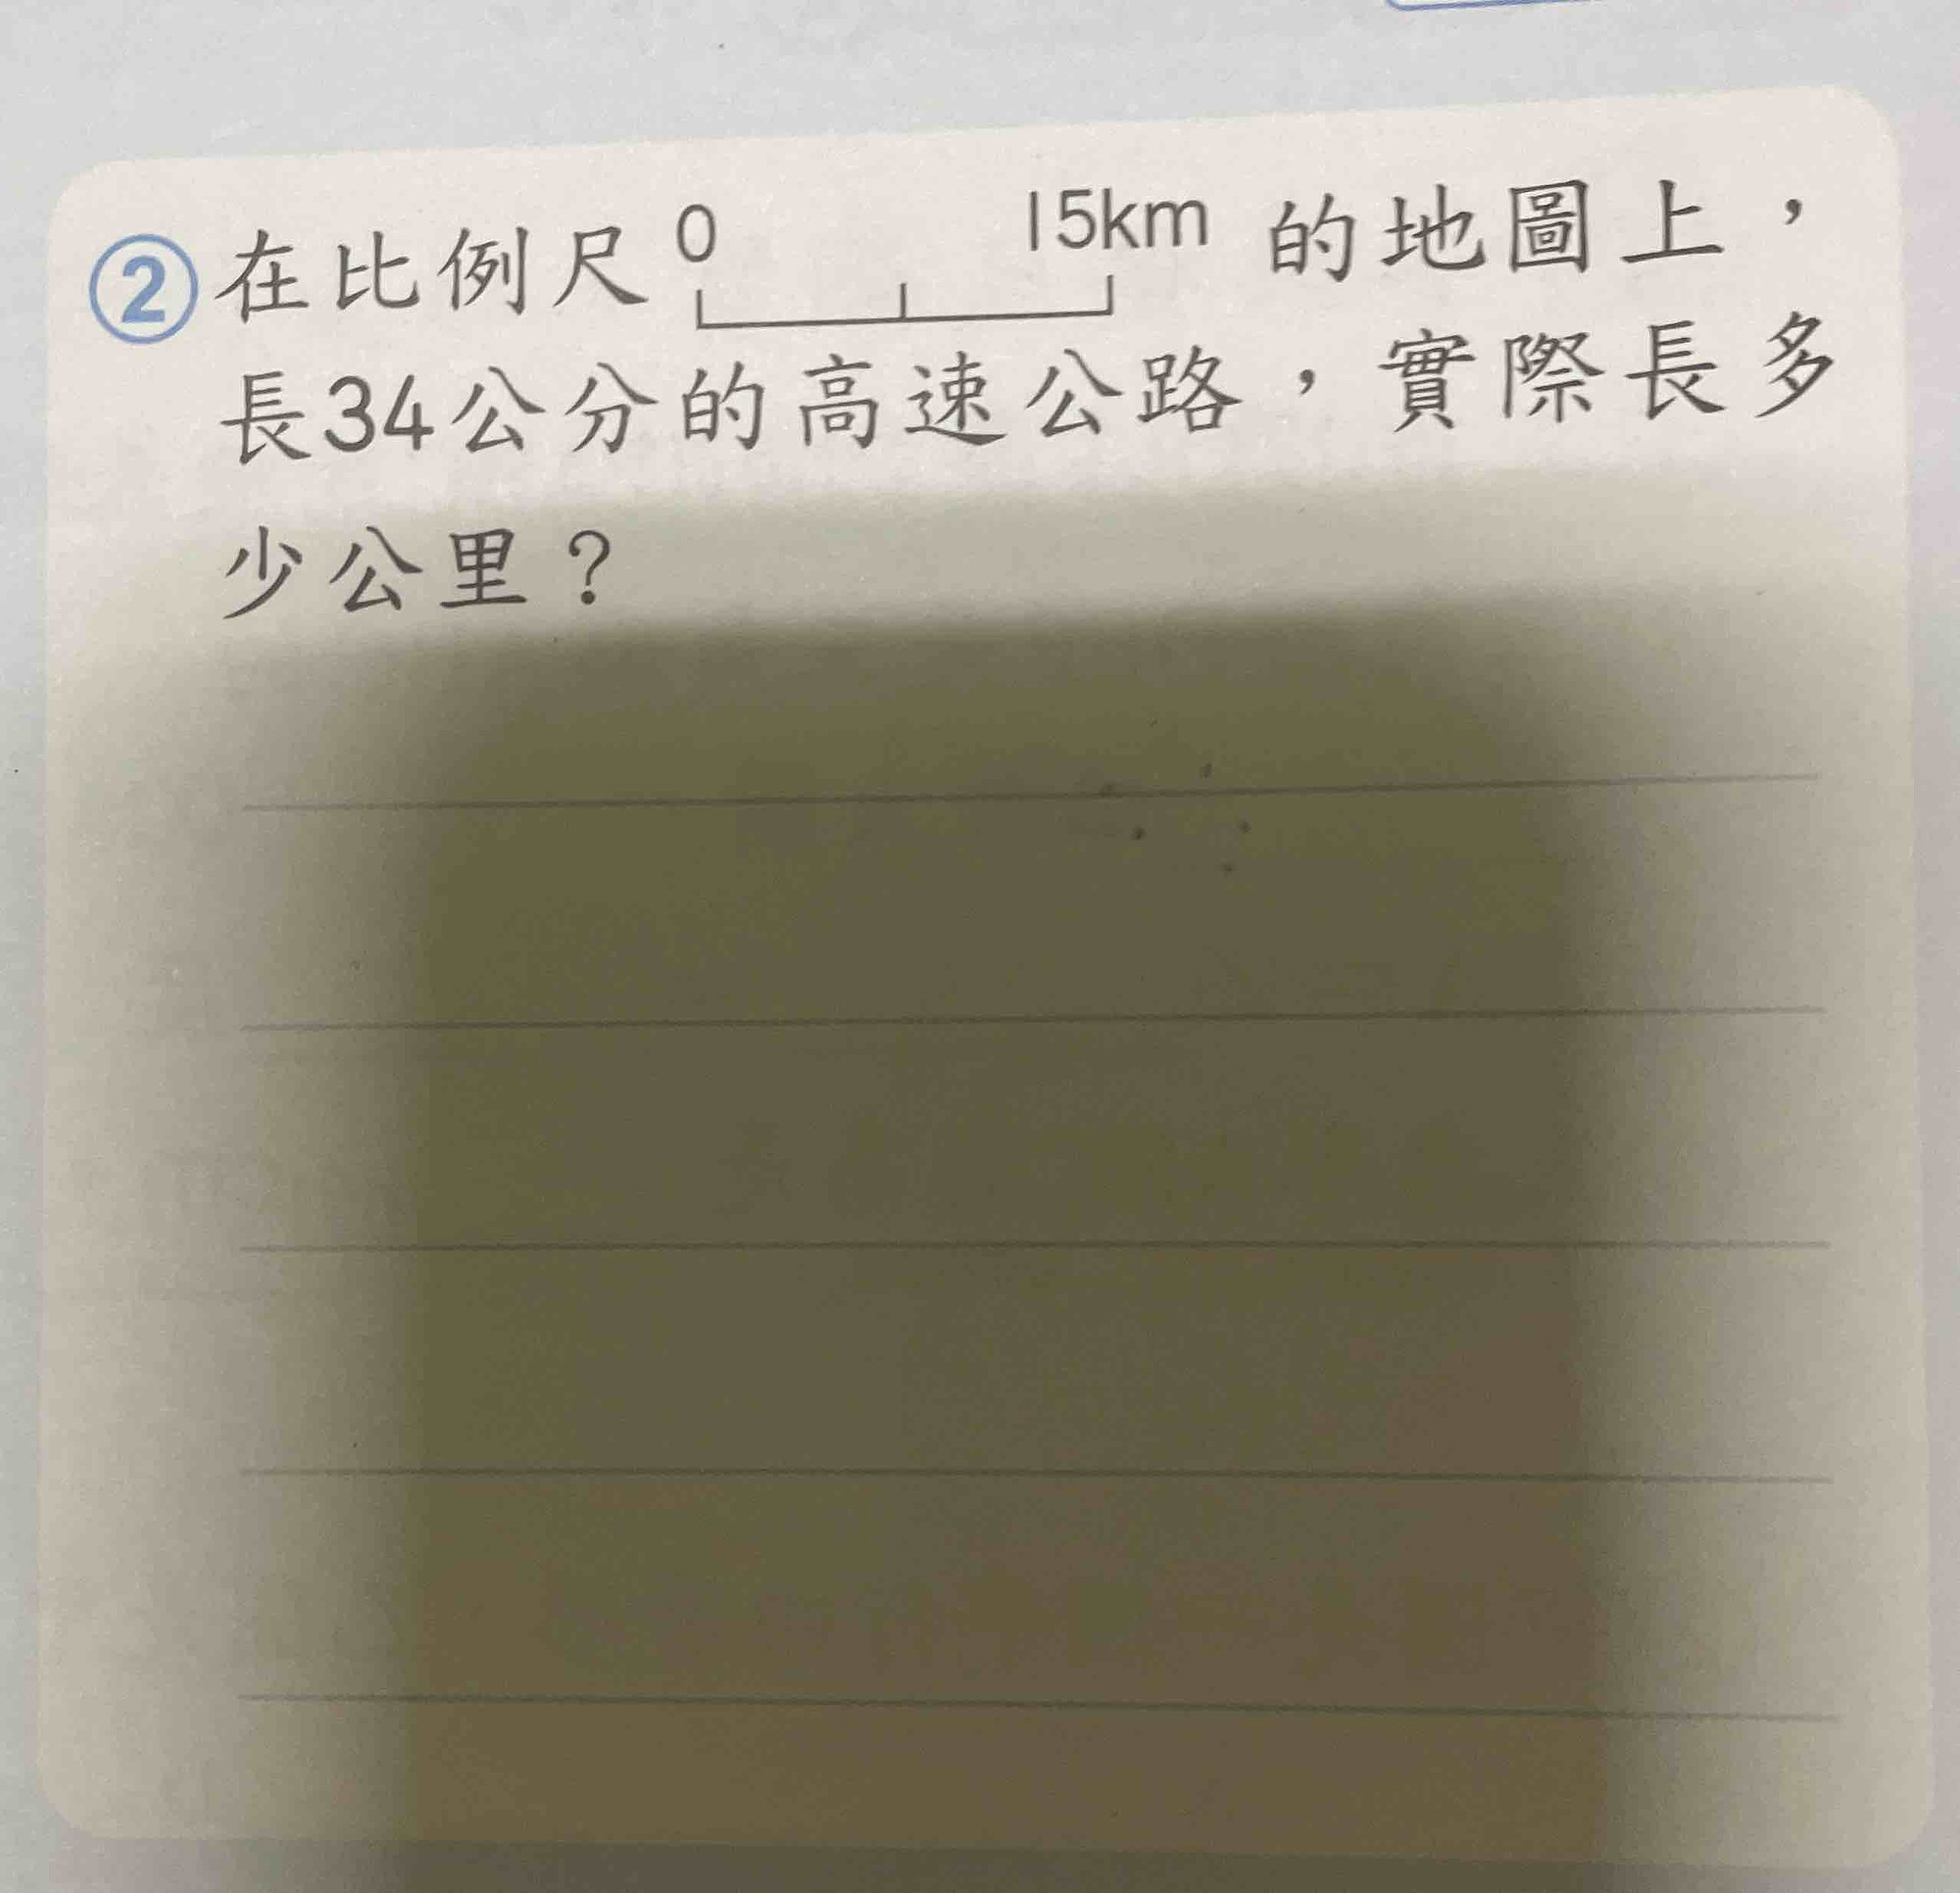 ②在比例尺 0 15km 的地圖上，
長34公分的高速公路，實際長多
少公里？